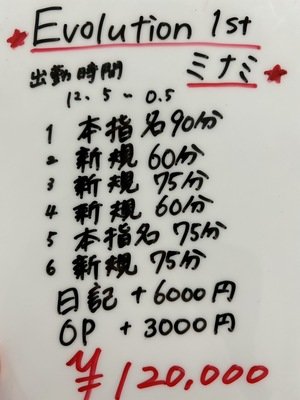 Evolution 1st
ミナミ
出勤時間
12.5〜0.5
1 本指名90分
2 新規 60分
3 新規 75分
4 新規 60分
5 本指名 75分
6 新規 75分
日記 +6000円
OP +3000円
¥120,000